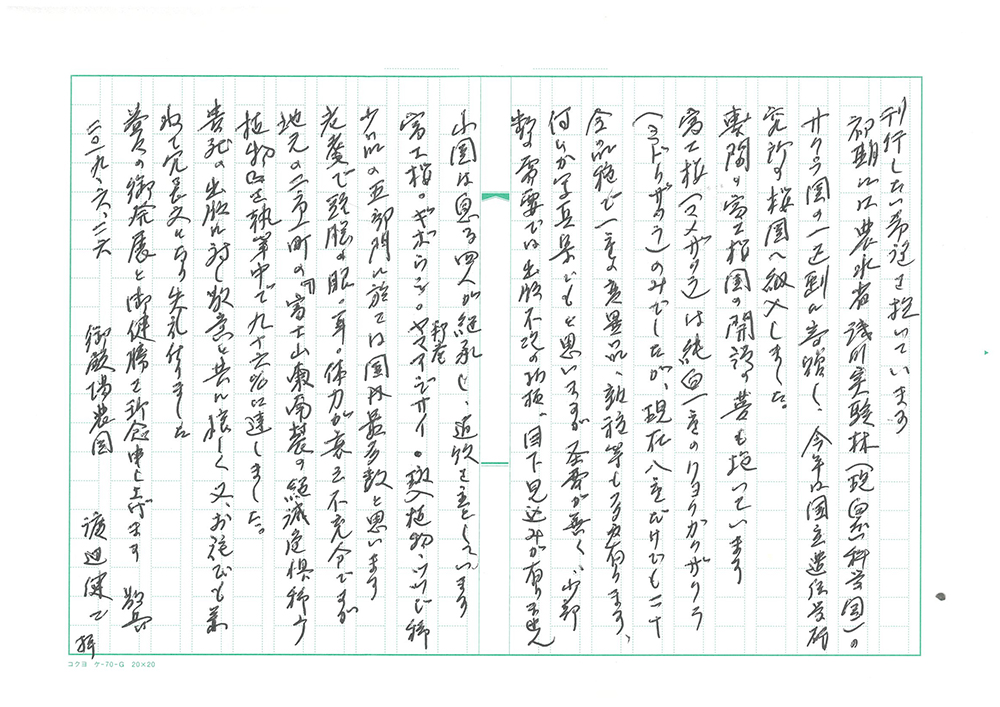 刊行したい希望を抱いています
初期には農水省浅川実験林(現多摩科学園)の
サクラ園の一区劃に寄贈し、今年は国立遺伝学研
究所の桜園へ納入しました。
専門の富士桜園の開設の夢も抱いています
富士桜(マメザクラ)は純白一重のリョクガクザクラ
(ミドリザクラ)のみでしたが、現在八重だけでも二十
全品種で一重の変異品、新種等も多数有ります、
何とか写真集でもと思いますが需要が無く、少部
数の需要では出版不況の折柄、目下見込みが有りません
小園は息子四人が継承し、造改を主としています
富士桜・ギボウシ・ヤマアジサイ・斑入植物、ツツジ科
野菊
少品の五部門に於ては国内最多数と思います
老齢で頭脳・眼・耳・体力が衰え不充分ですが
地元の二市一町の『富士山東南麓の絶滅危惧稀少
植物』を執筆中で九十六%に達しました。
貴誌の出版に対し敬意と共に嬉しく又、お詫びも兼
ねて冗長文になり失礼仕りました
益々の御発展と御健勝を祈念申し上げます 敬具
二〇一九、六、二六 御殿場農園 渡辺健二 拝
コクヨ ケ-70-G 20×20